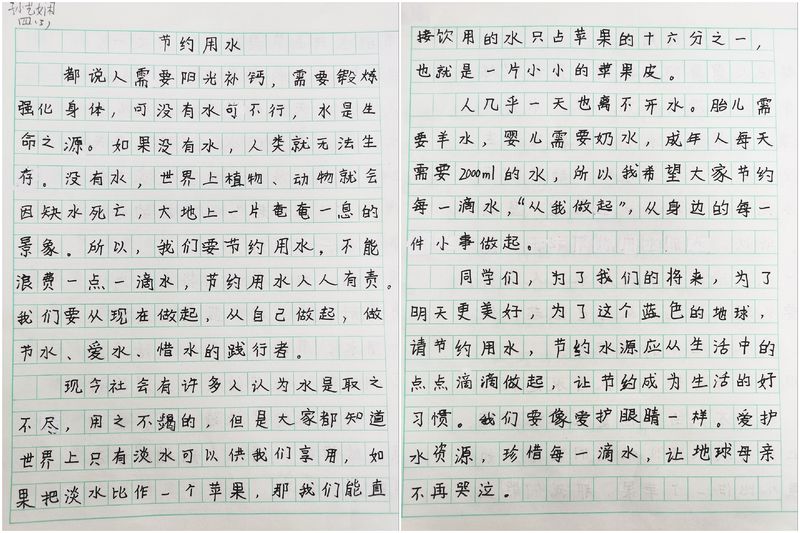 孙艺娴
四(5)
节约用水
都说人需要阳光补钙，需要锻炼
强化身体，可没有水可不行，水是生
命之源。如果没有水，人类就无法生
存。没有水，世界上植物、动物就会
因缺水死亡，大地上一片奄奄一息的
景象。所以，我们要节约用水，不能
浪费一点一滴水，节约用水人人有责。
我们要从现在做起，从自己做起，做
节水、爱水、惜水的践行者。
现今社会有许多人认为水是取之
不尽，用之不竭的，但是大家都知道
世界上只有淡水可以供我们享用，如
果把淡水比作一个苹果，那我们能直
接饮用的水只占苹果的十六分之一，
也就是一片小小的苹果皮。
人几乎一天也离不开水。胎儿需
要羊水，婴儿需要奶水，成年人每天
需要2000ml的水，所以我希望大家节约
每一滴水，“从我做起”，从身边的每一
件小事做起。
同学们，为了我们的将来，为了
明天更美好，为了这个蓝色的地球，
请节约用水，节约水源应从生活中的
点点滴滴做起，让节约成为生活的好
习惯。我们要像爱护眼睛一样。爱护
水资源，珍惜每一滴水，让地球母亲
不再哭泣。